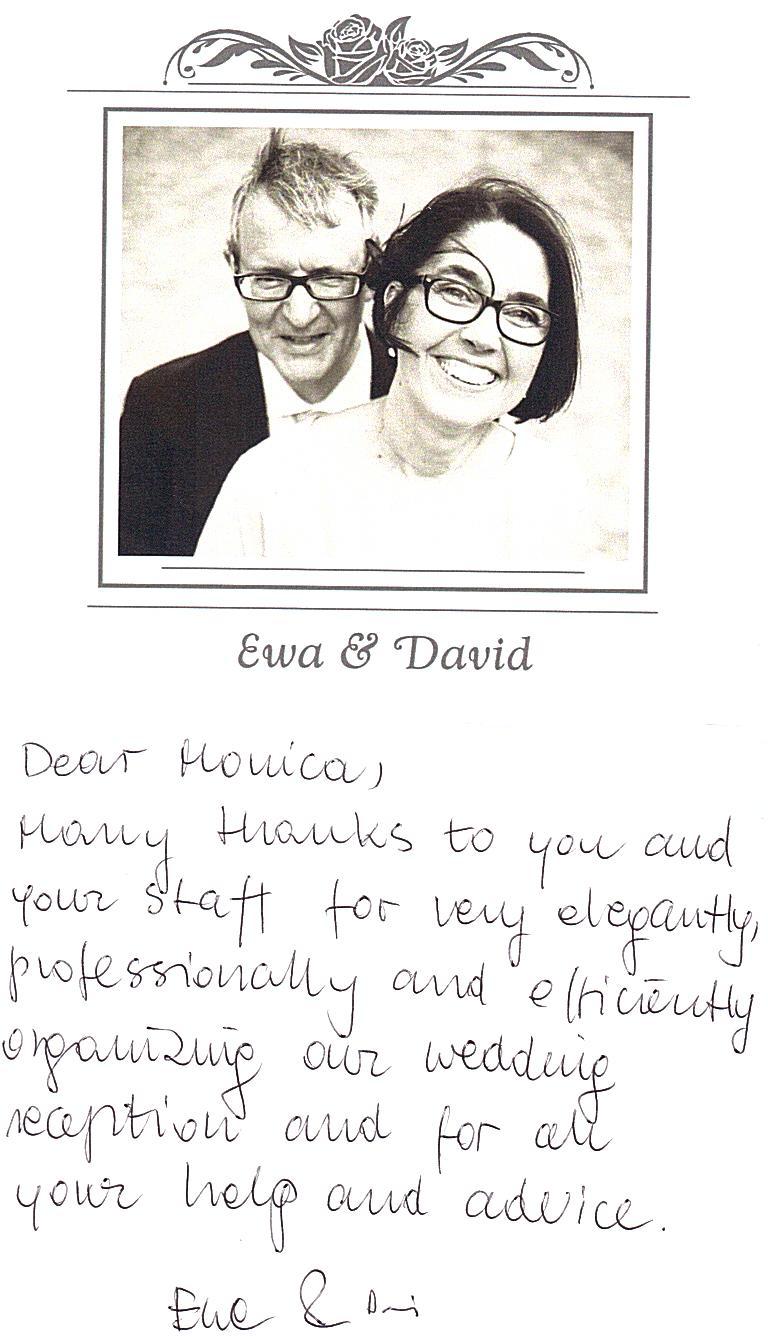 Ewa & David
Dear Monica,
Many thanks to you and
your staff for very elegantly,
professionally and efficiently
organizing our wedding
reception and for all
your help and advice.
Ewa &